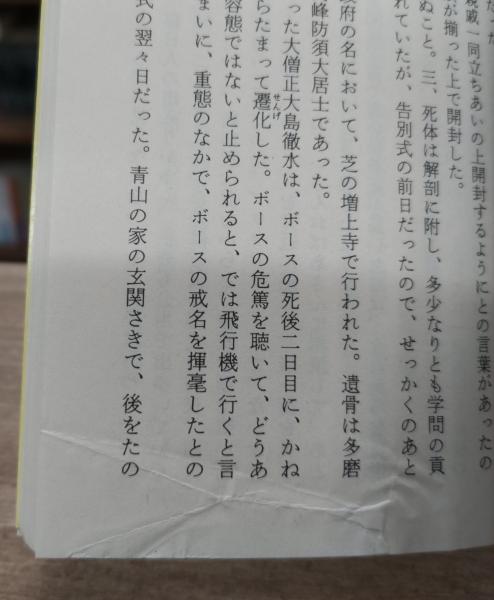 だった
親戚一同立ちあいの上開封するようにとの言葉があったの
が揃った上で開封した。
ぬこと。三、死体は解剖に附し、多少なりとも学問の貢
れていたが、告別式の前日だったので、せっかくのあと
政府の名において、芝の増上寺で行われた。遺骨は多磨
峰防須大居士であった。
った大僧正大島徹水は、ボースの死後二日目に、かね
らたまって遷化した。ボースの危篤を聴いて、どうあ
せんげ
容態ではないと止められると、では飛行機で行くと言
まいに、重態のなかで、ボースの戒名を揮毫したとの
式の翌々日だった。青山の家の玄関さきで、後をたの